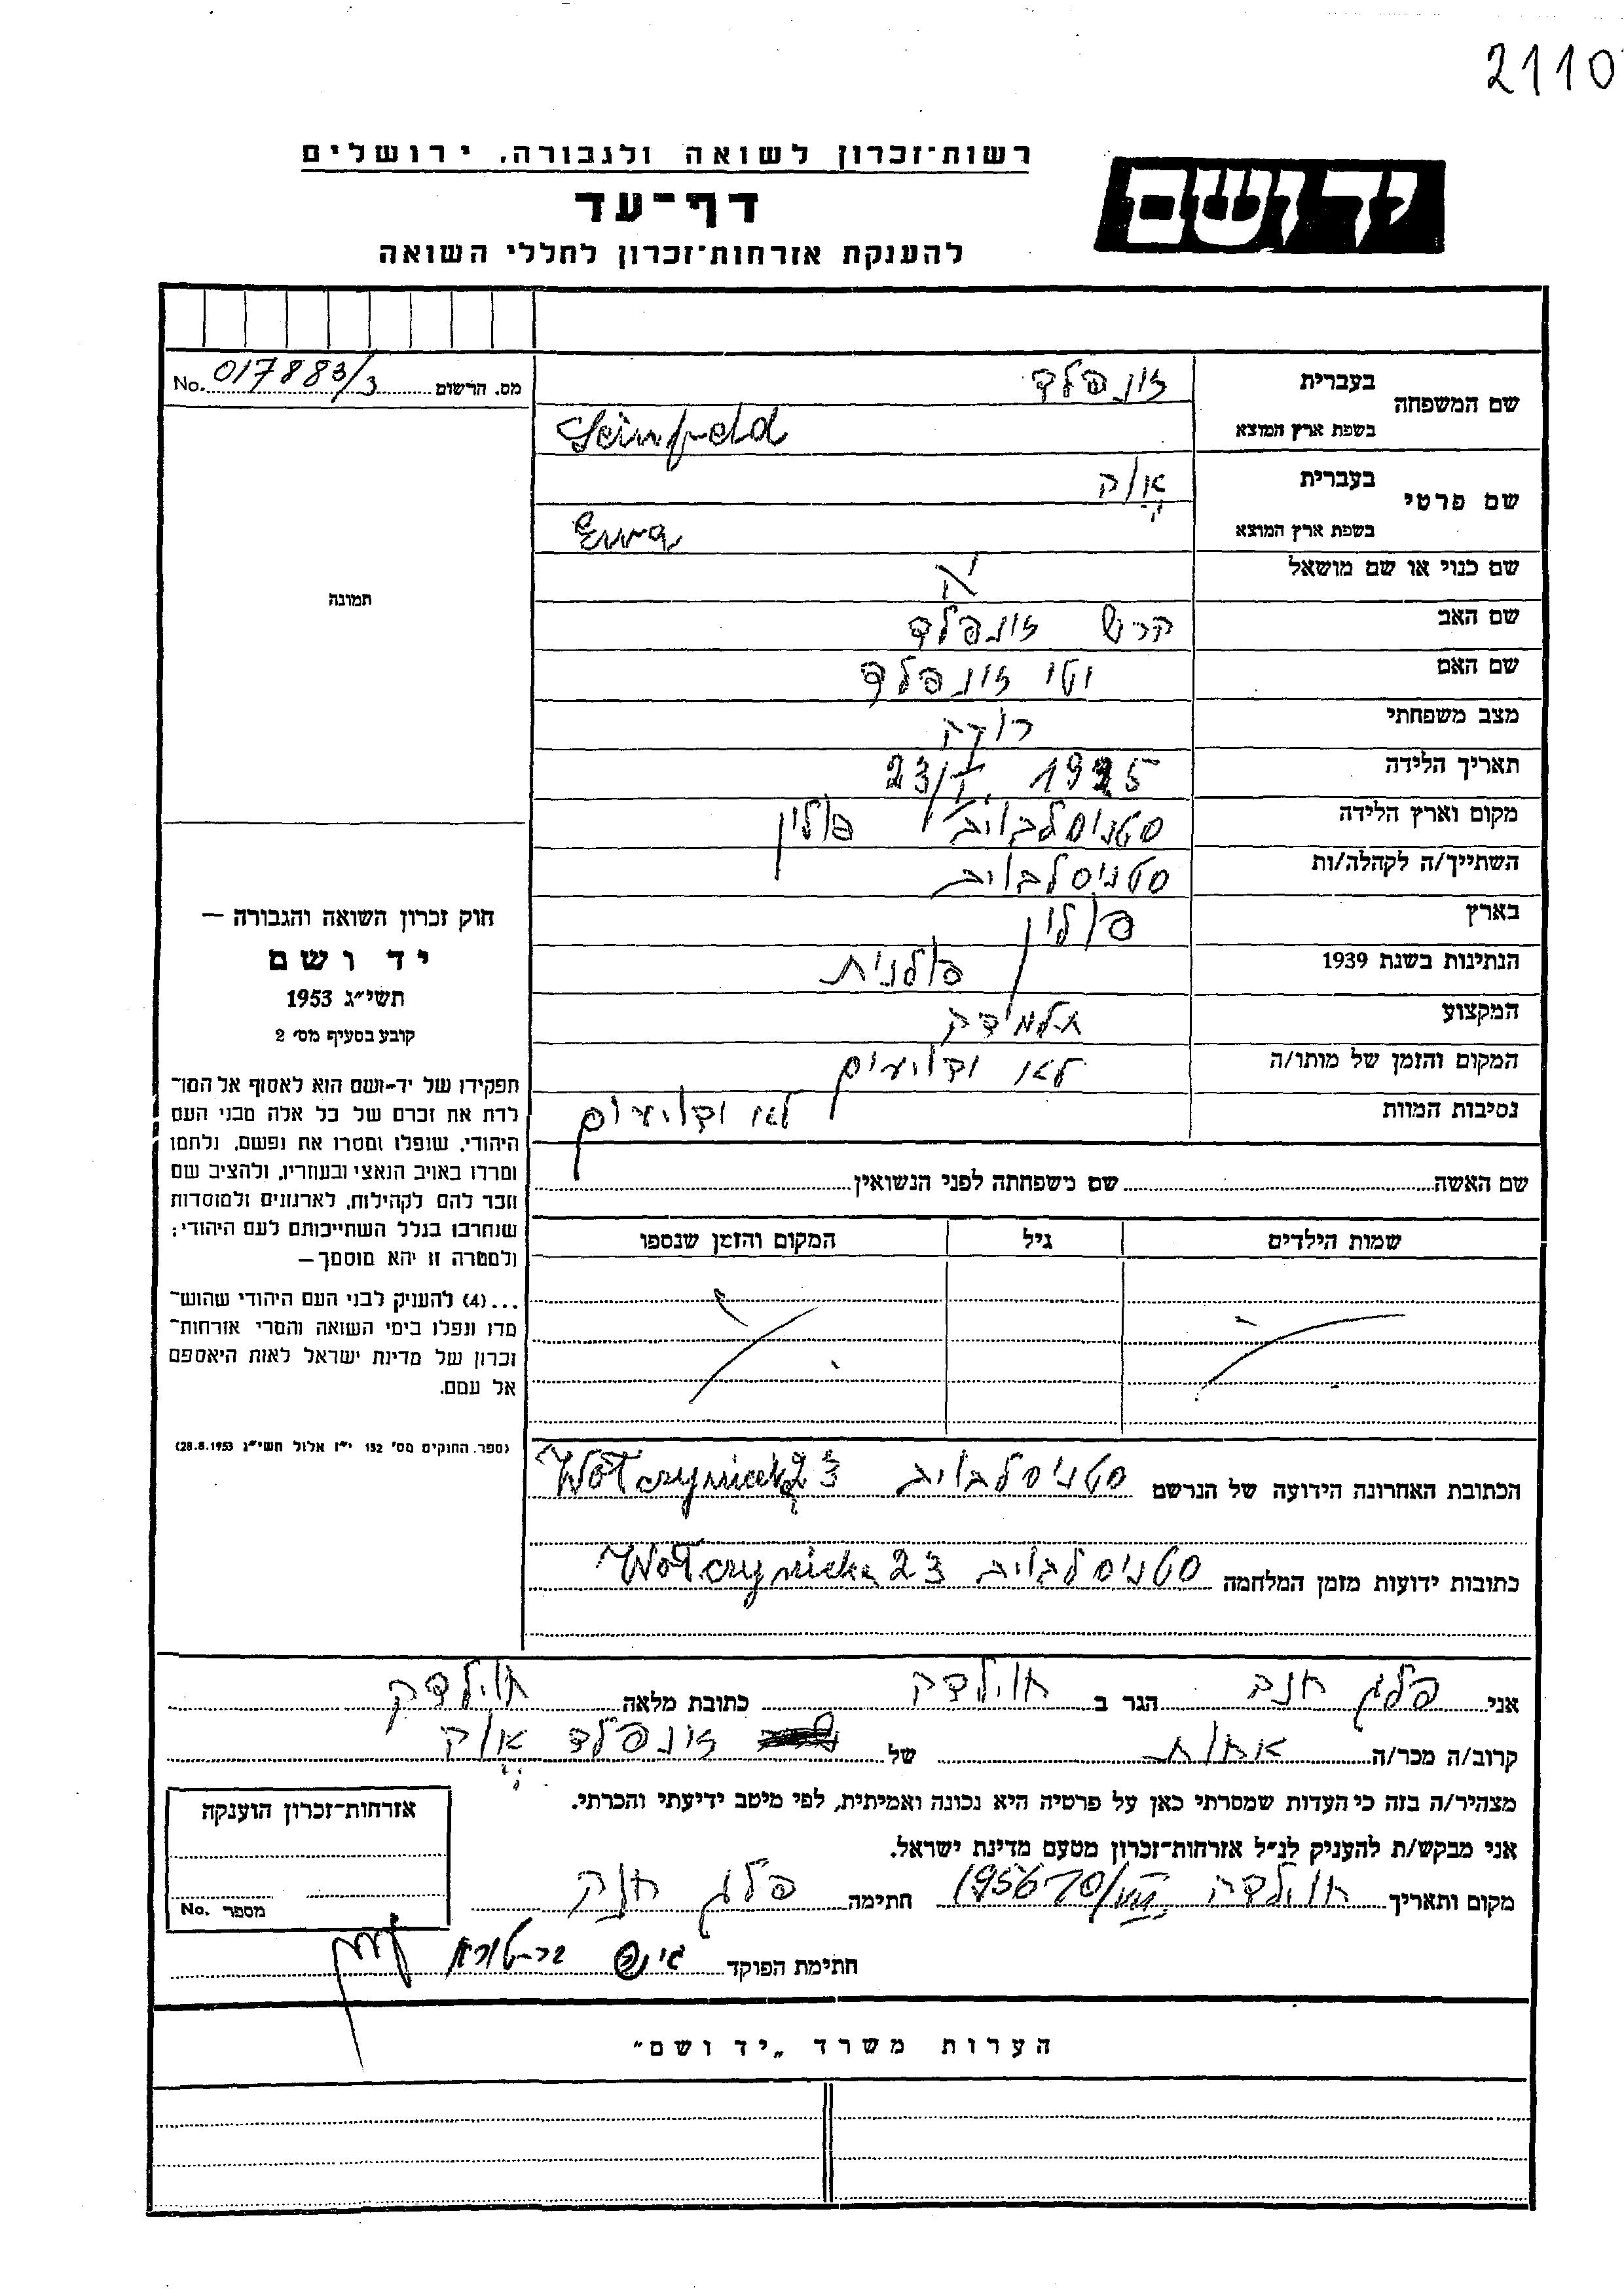 2110
רשות־זכרון לשואה ולגבורה, ירושלים
יד ושם
דף־עד
להענקת אזרחות־זכרון לחללי השואה
No. 017883/3 מס. הרשום
שם המשפחה בעברית זונפלד
בשפת ארץ המוצא
שם פרטי בעברית
בשפת ארץ המוצא
שם כנוי או שם מושאל
שם האב קרש זונפלד
שם האם זונפלד
מצב משפחתי רווקה
תאריך הלידה 1925 23/I
מקום וארץ הלידה סטניסלבוב פולין
השתייך/ה לקהלה/ות סטניסלבוב
בארץ פולין
הנתינות בשנת 1939 פולנית
המקצוע תלמידה
המקום והזמן של מותו/ה לא ידועים
נסיבות המוות לא ידועים
שם האשה שם משפחתה לפני הנשואין
שמות הילדים גיל המקום והזמן שנספו
הכתובת האחרונה הידועה של הנרשם סטניסלבוב 23
כתובות ידועות מזמן המלחמה סטניסלבוב 23
תמונה
חוק זכרון השואה והגבורה —
יד ושם
תשי״ג 1953
קובע בסעיף מס׳ 2
תפקידו של יד-ושם הוא לאסוף אל המו־
לדת את זכרם של כל אלה מבני העם
היהודי, שנפלו ומסרו את נפשם, נלחמו
ומרדו באויב הנאצי ובעוזריו, ולהציב שם
וזכר להם לקהילות, לארגונים ולמוסדות
שנחרבו בגלל השתייכותם לעם היהודי;
ולמטרה זו יהא מוסמך —
...(4) להעניק לבני העם היהודי שהוש־
מדו ונפלו בימי השואה והמרי אזרחות־
זכרון של מדינת ישראל לאות היאספם
אל עמם.
(ספר החוקים מס׳ 132 י״ז אלול תשי״ג 28.8.1953)
אני פלג חנה הגר ב חולדה כתובת מלאה חולדה
קרוב/ה מכר/ה אחות של זונפלד
מצהיר/ה בזה כי העדות שמסרתי כאן על פרטיה היא נכונה ואמיתית, לפי מיטב ידיעתי והכרתי.
אני מבקש/ת להעניק לנ״ל אזרחות־זכרון מטעם מדינת ישראל.
מקום ותאריך חולדה 1956 חתימה פלג חנה
חתימת הפוקד
אזרחות־זכרון הוענקה
מספר No.
הערות משרד „יד ושם״